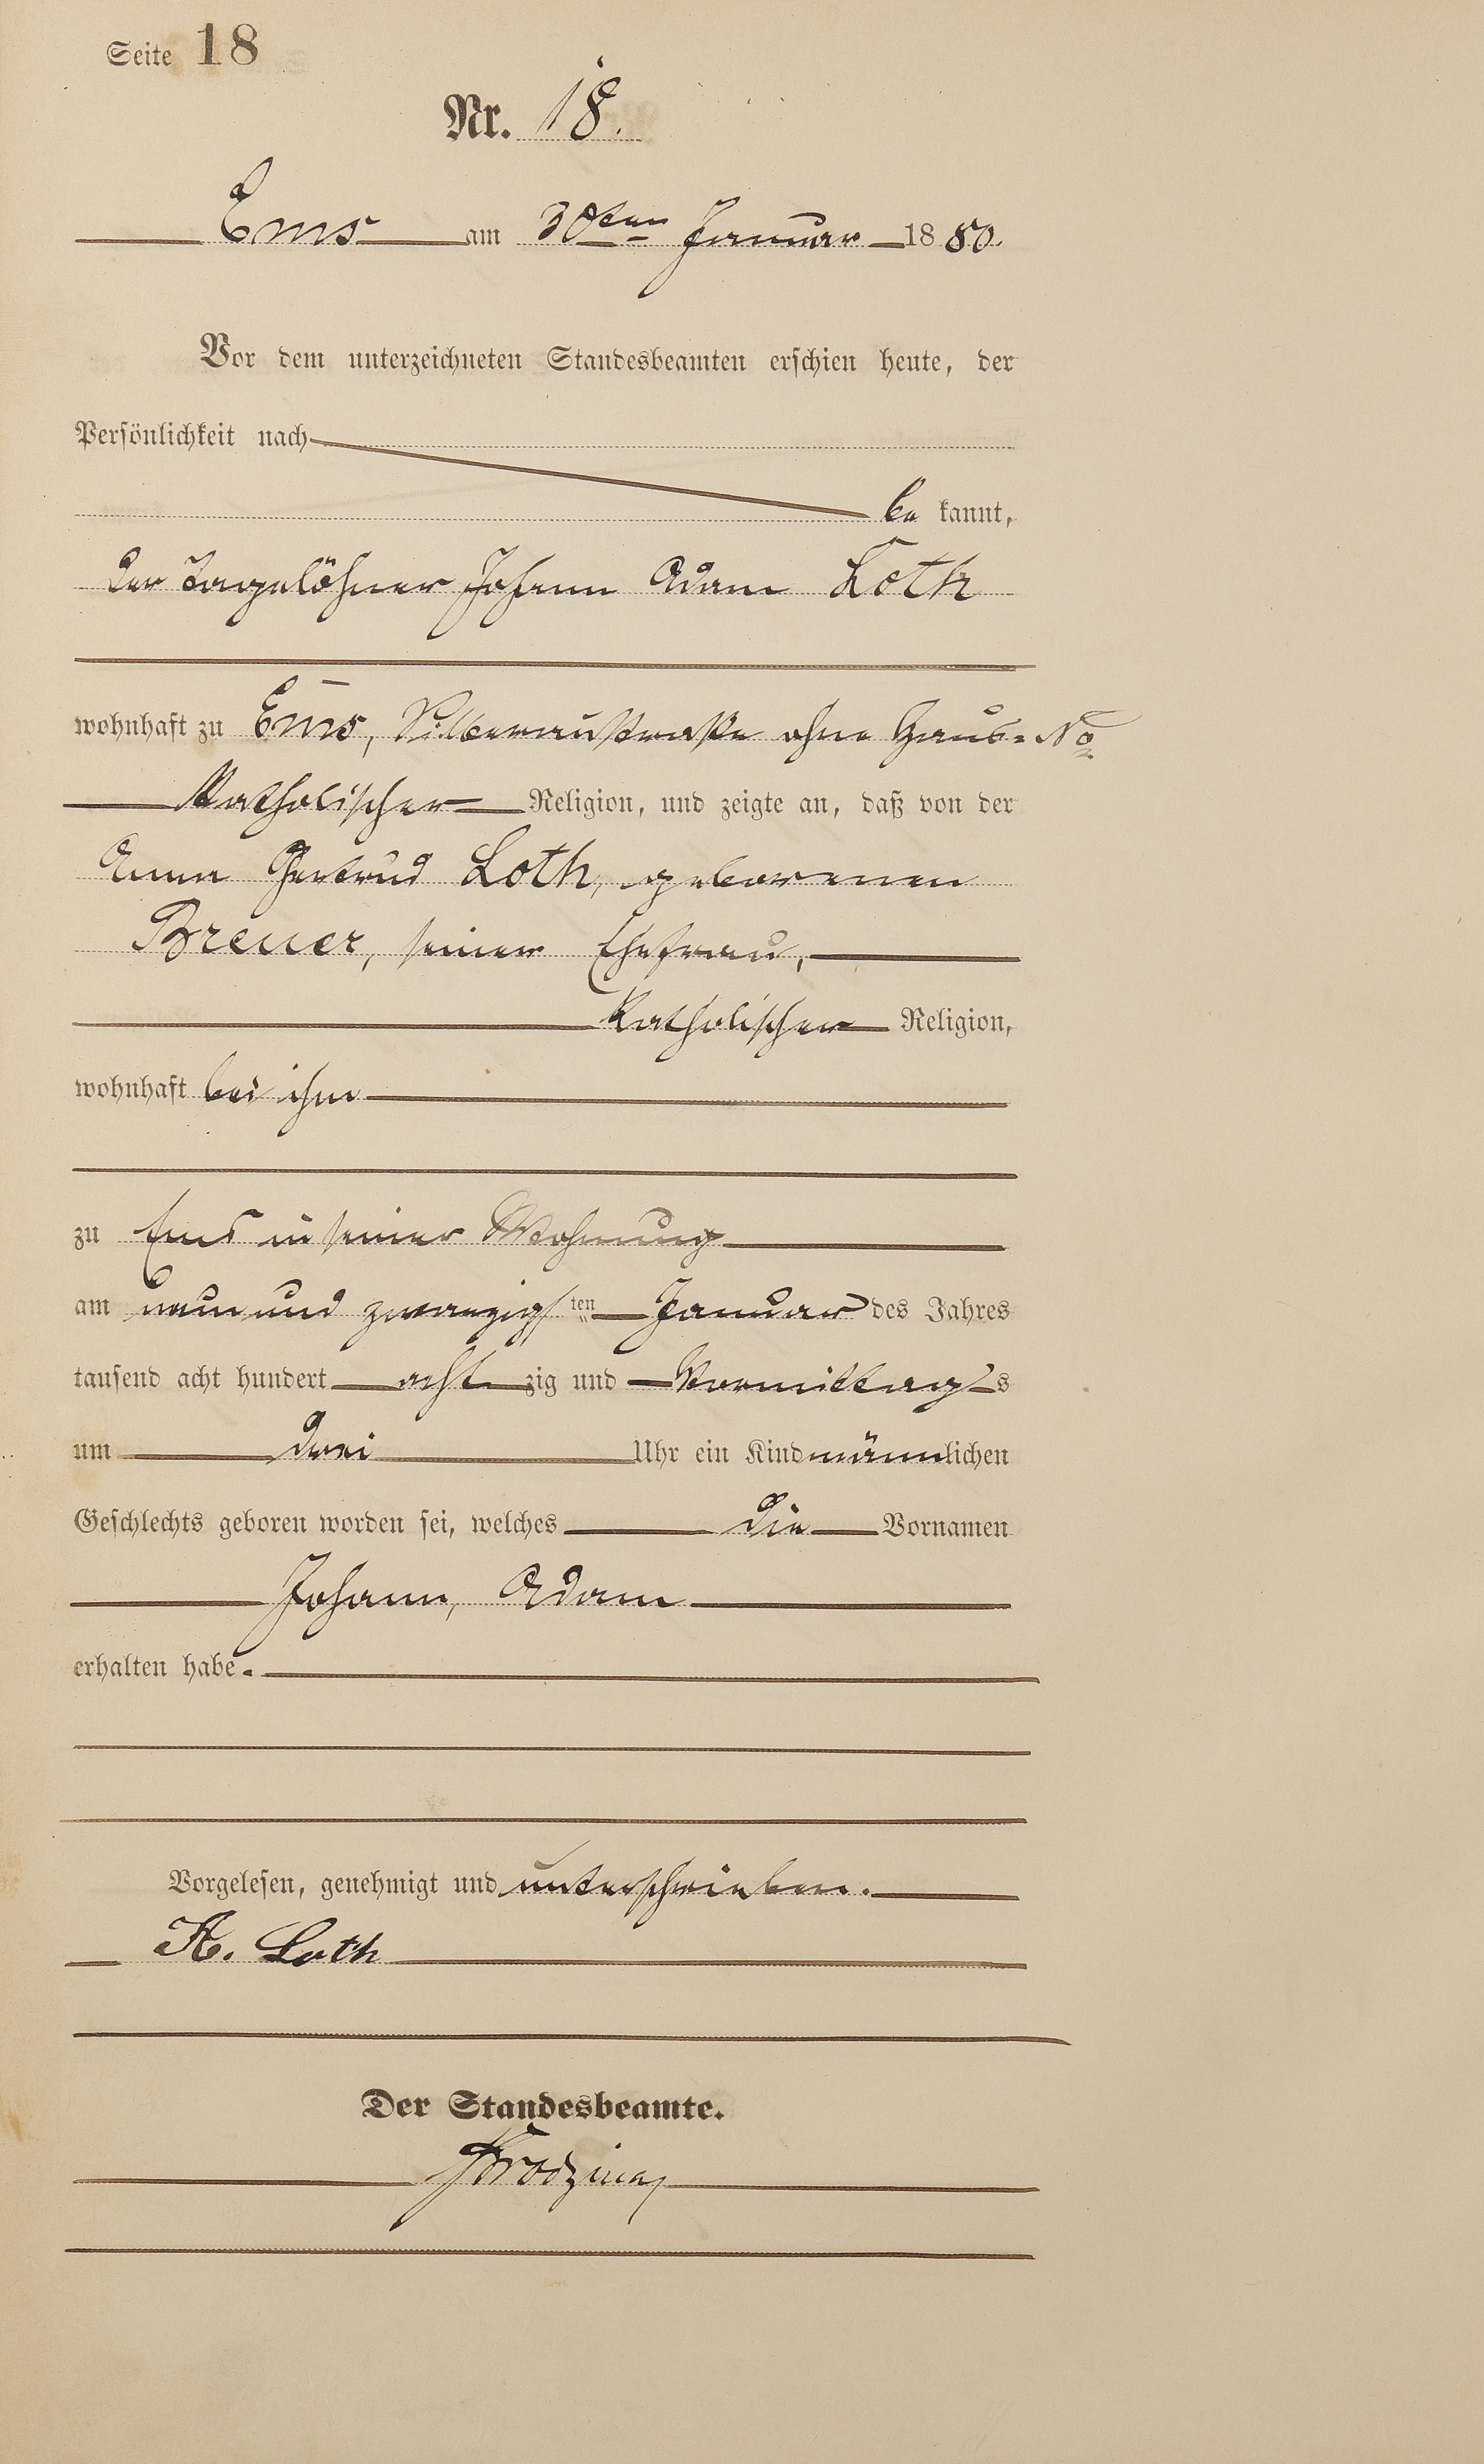 Seite 18
Nr. 18.
Ems am 30ten Januar 1880.
Vor dem unterzeichneten Standesbeamten erschien heute, der
Persönlichkeit nach
be kannt,
der Tagelöhner Johann Adam Loth
wohnhaft zu Ems, Silberaustraße ohne Haus-No
katholischer Religion, und zeigte an, daß von der
Anna Gertrud Loth, geborenen
Breuer, seiner Ehefrau,
katholischer Religion,
wohnhaft bei ihm
zu Ems in seiner Wohnung
am neun und zwanzigsten Januar des Jahres
tausend acht hundert acht zig und Vormittags
um drei Uhr ein Kind männlichen
Geschlechts geboren worden sei, welches die Vornamen
Johann, Adam
erhalten habe.
Vorgelesen, genehmigt und unterschrieben.
A. Loth
Der Standesbeamte.